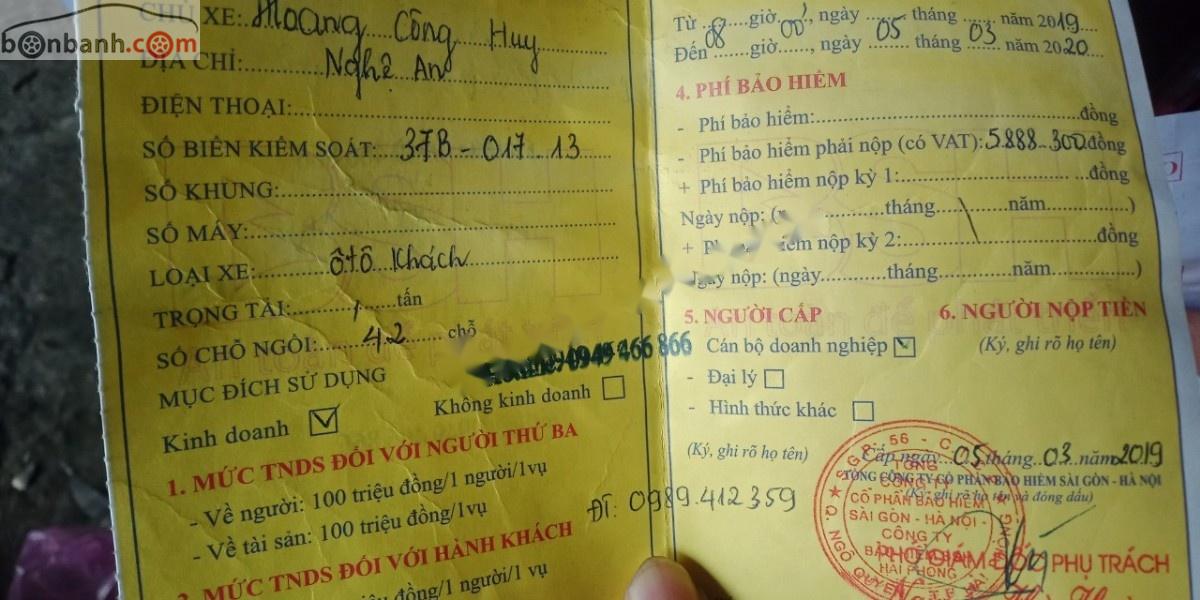 bonbanh.com
CHỦ XE: Hoang Công Huy
ĐỊA CHỈ: Nghệ An
ĐIỆN THOẠI:
SỐ BIỂN KIỂM SOÁT: 37B - 017.13
SỐ KHUNG:
SỐ MÁY:
LOẠI XE: Ôtô Khách
TRỌNG TẢI: / tấn
SỐ CHỖ NGỒI: 42 chỗ
MỤC ĐÍCH SỬ DỤNG
Kinh doanh ☑ Không kinh doanh ☐
1. MỨC TNDS ĐỐI VỚI NGƯỜI THỨ BA
- Về người: 100 triệu đồng/1 người/1vụ
- Về tài sản: 100 triệu đồng/1vụ
2. MỨC TNDS ĐỐI VỚI HÀNH KHÁCH
triệu đồng/1 người/1 vụ
0949 466 866
ĐT: 0989.412359
Từ giờ, ngày tháng năm 2019
Đến 08 giờ 00', ngày 05 tháng 03 năm 2020
4. PHÍ BẢO HIỂM
- Phí bảo hiểm: đồng
- Phí bảo hiểm phải nộp (có VAT): 5.888.300 đồng
+ Phí bảo hiểm nộp kỳ 1: đồng
Ngày nộp: ( tháng năm )
+ hiểm nộp kỳ 2: đồng
Ngày nộp: (ngày tháng năm )
5. NGƯỜI CẤP
Cán bộ doanh nghiệp ☑
- Đại lý ☐
- Hình thức khác ☐
(Ký, ghi rõ họ tên)
6. NGƯỜI NỘP TIỀN
(Ký, ghi rõ họ tên)
Cấp ngày 05 tháng 03 năm 2019
TỔNG CÔNG TY CỔ PHẦN BẢO HIỂM SÀI GÒN - HÀ NỘI
(Ký, ghi rõ họ tên và đóng dấu)
TỔNG
CÔNG TY
CỔ PHẦN BẢO HIỂM
SÀI GÒN - HÀ NỘI -
CÔNG TY
HẢI PHÒNG
Q. NGÔ QUYỀN
PHÓ GIÁM ĐỐC PHỤ TRÁCH